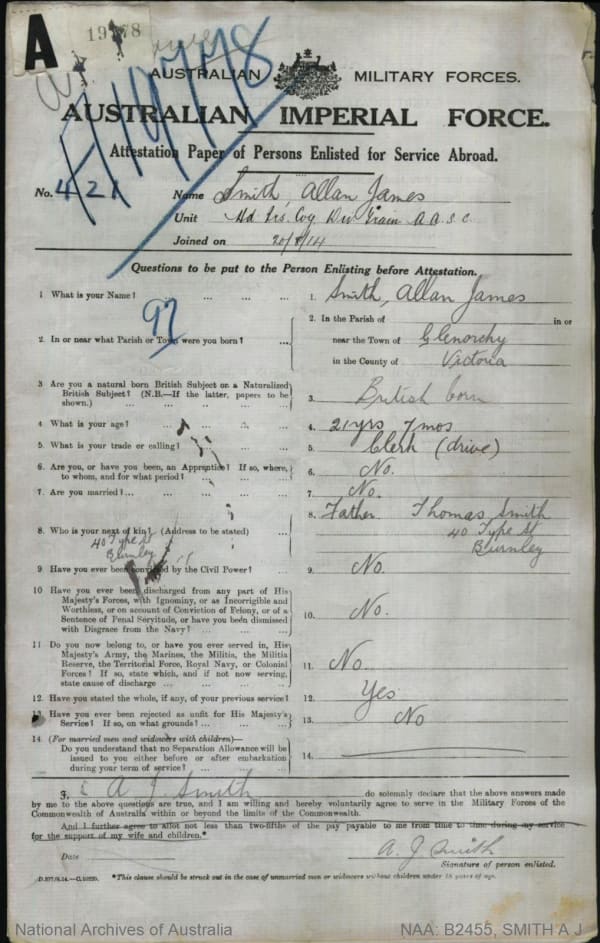 A 19778
AUSTRALIAN MILITARY FORCES.
AUSTRALIAN IMPERIAL FORCE.
Attestation Paper of Persons Enlisted for Service Abroad.
No. 421 Name Smith, Allan James
Unit Hd Qrs. Coy Div Train A.A.S.C.
Joined on 20/8/14
Questions to be put to the Person Enlisting before Attestation.
1 What is your Name? ... ... ... 1. Smith, Allan James
97
2. In or near what Parish or Town were you born? ... 2. In the Parish of in or
near the Town of Glenorchy
in the County of Victoria
3 Are you a natural born British Subject or a Naturalized
British Subject? (N.B.—If the latter, papers to be
shown.) ... ... ... ... 3. British born
4. What is your age? ... ... ... 4. 21 yrs 7 mos
5. What is your trade or calling? ... ... 5. Clerk (drive)
6. Are you, or have you been, an Apprentice? If so, where,
to whom, and for what period? ... ... 6. No.
7. Are you married? ... ... ... ... 7. No.
8. Who is your next of kin? (Address to be stated) ... 8. Father Thomas Smith
40 Type St
Burnley
40 Type St
Burnley
9 Have you ever been convicted by the Civil Power? ... 9. No.
10 Have you ever been discharged from any part of His
Majesty's Forces, with Ignominy, or as Incorrigible and
Worthless, or on account of Conviction of Felony, or of a
Sentence of Penal Servitude, or have you been dismissed
with Disgrace from the Navy? ... ... ... 10. No.
11 Do you now belong to, or have you ever served in, His
Majesty's Army, the Marines, the Militia, the Militia
Reserve, the Territorial Force, Royal Navy, or Colonial
Forces? If so, state which, and if not now serving,
state cause of discharge ... ... ... 11. No
12. Have you stated the whole, if any, of your previous service? 12. Yes
13. Have you ever been rejected as unfit for His Majesty's
Service? If so, on what grounds? ... ... 13. No
14 (For married men and widowers with children)—
Do you understand that no Separation Allowance will be
issued to you either before or after embarkation
during your term of service? ... ... 14.
I, A J Smith do solemnly declare that the above answers made
by me to the above questions are true, and I am willing and hereby voluntarily agree to serve in the Military Forces of the
Commonwealth of Australia within or beyond the limits of the Commonwealth.
And I further agree to allot not less than two-fifths of the pay payable to me from time to time during my service
for the support of my wife and children.*
Date A. J. Smith
Signature of person enlisted.
*This clause should be struck out in the case of unmarried men or widowers without children under 18 years of age.
National Archives of Australia NAA: B2455, SMITH A J